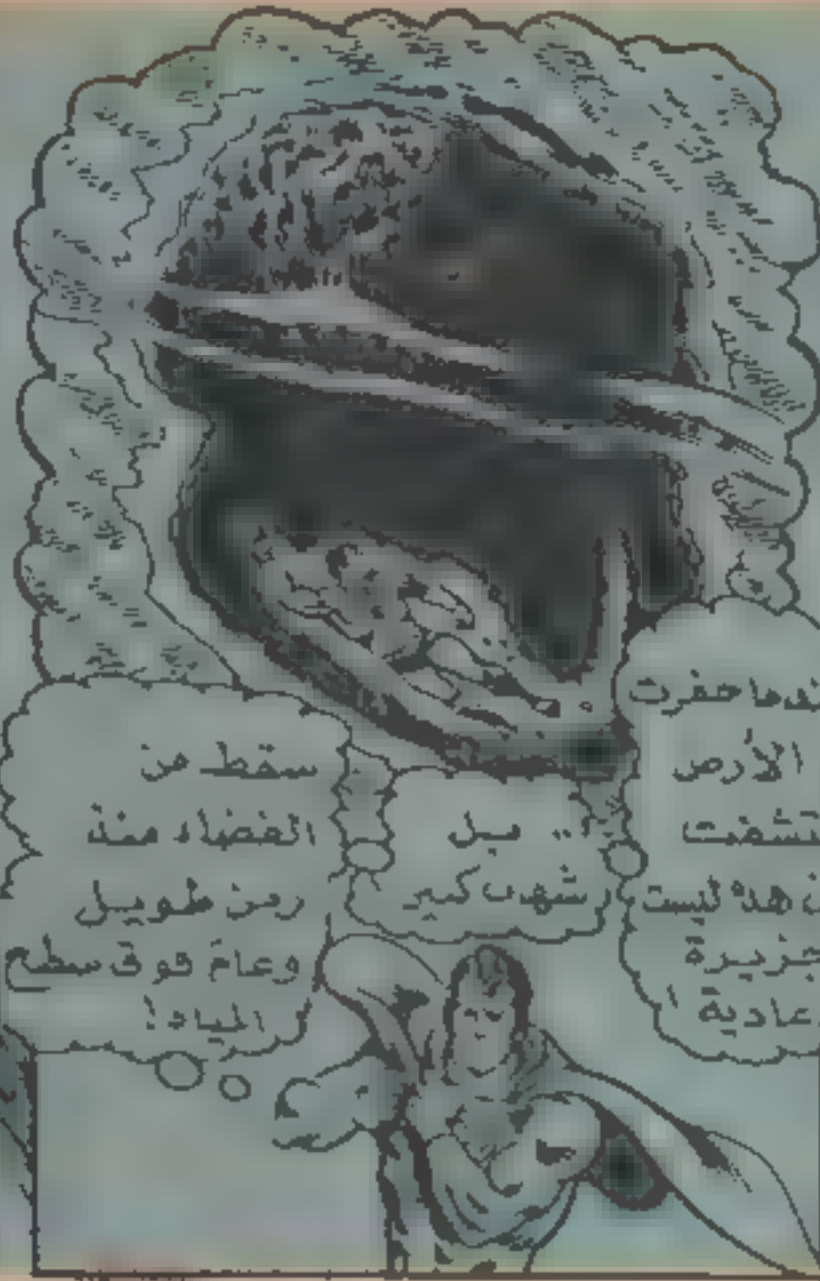 ندما حفرت
الأرض
تشفت
ن هذه ليست
جزيرة
عادية!
.. بل
شهب كبير
سقط من
الفضاء منذ
زمن طويل
وعام فوق سطح
المياه!